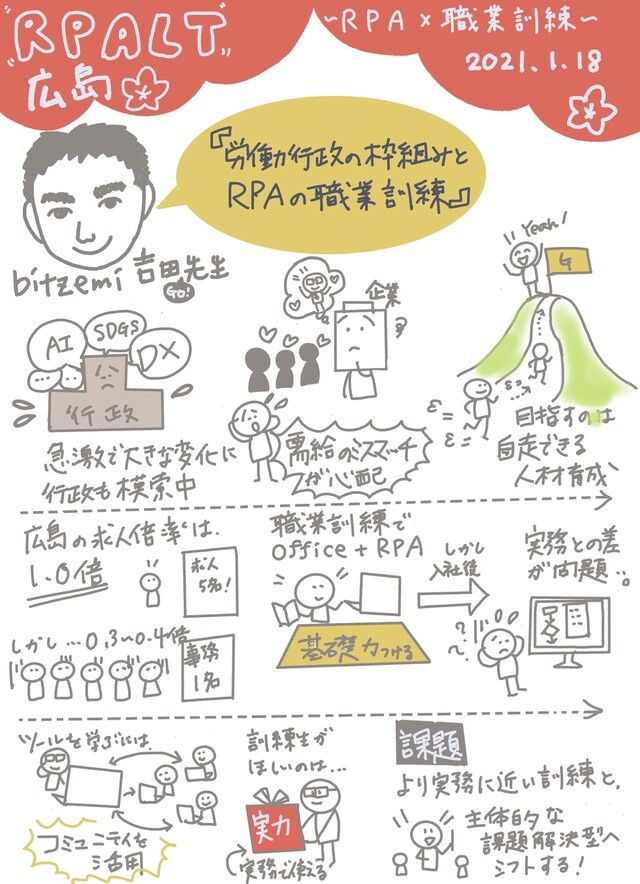 "RPALT"
広島
~RPA×職業訓練~
2021.1.18
『労働行政の枠組みと
RPAの職業訓練』
bitzemi 吉田先生
Go!
AI
SDGs
DX
...
公
行政
急激で大きな変化に
行政も模索中
企業
需給のミスマッチ
が心配
Yeah!
目指すのは
自走できる
人材育成
広島の求人倍率は、
1.0倍
求人
5名!
しかし…0.3~0.4倍
事務
1名
職業訓練で
office+RPA
基礎力つける
しかし
入社後
実務との差
が問題…。
ツールを学ぶには、
コミュニティを
活用
訓練生が
ほしいのは…
実力
実務で使える
課題
より実務に近い訓練と、
主体的な
課題解決型へ
シフトする!